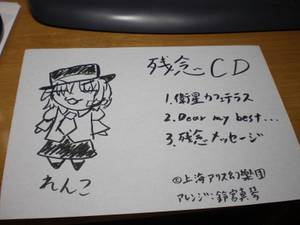 残念CD
1.衛星カフェテラス
2.Dear my best...
3.残念メッセージ
れんこ
©上海アリス幻樂団
アレンジ:鈴宮真琴